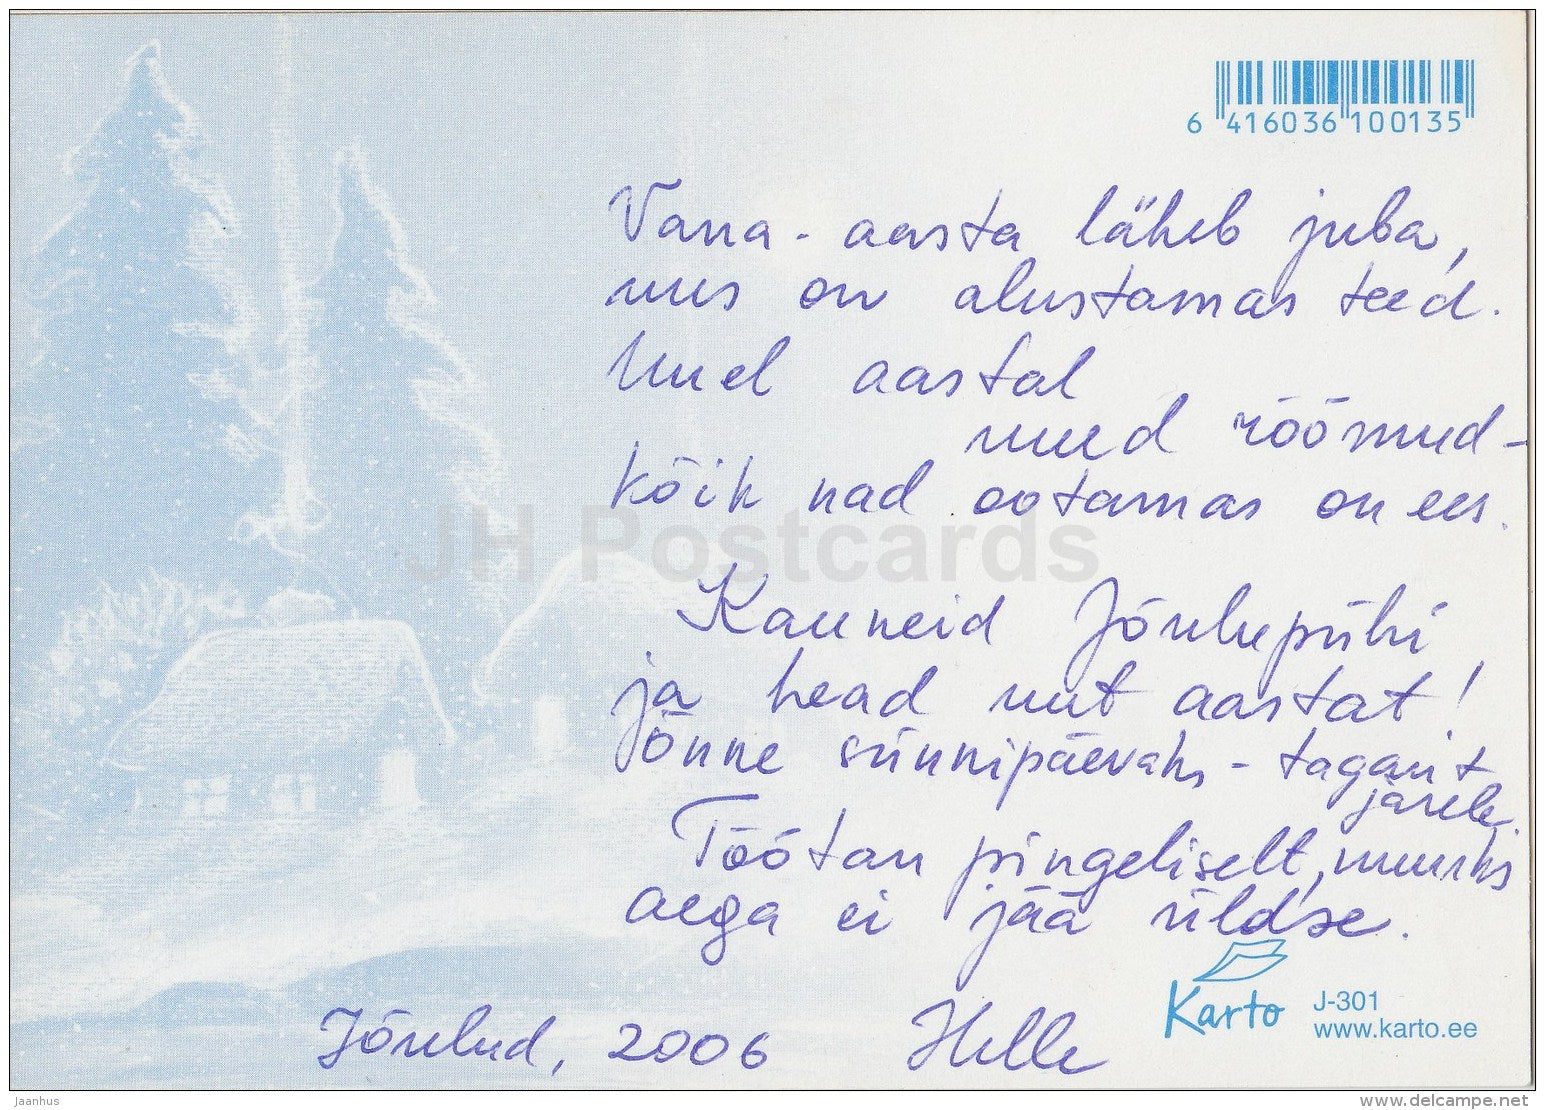 6 416036 100135
Vana-aasta läheb juba,
uus on alustamas teed.
Uuel aastal
uued rõõmud-
kõik nad ootamas on ees.
JH Postcards
Kauneid Jõulupühi
ja head uut aastat!
Õnne sünnipäevaks - tagant
järele.
Töötan pingeliselt,
aega ei jää üldse.
Karto J-301
www.karto.ee
Jõulud, 2006 Helle
Jaanhus
www.delcampe.net